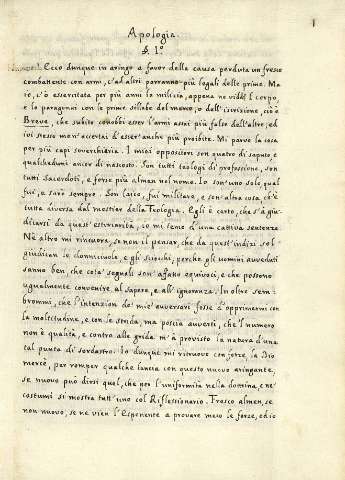 1
Apologia.
§. I.º
Ecco dunque in aringo a favor della causa perduta un fresco
combatente con armi, ch'ad altri parranno più legali delle prime. Ma
io, c'ò essercitata per più anni la milizia, appena ne viddi l'corpo,
e lo paragonai con le prime sillabe del merco, o dell'iscrizione, ciò è
Breve, che subito conobbi esser l'armi assai più false dell'altre, ed
io stesso m'accertai d'esser anche più proibite. Mi parve la cosa
per più capi soverchiaria. I miei oppositori son quatro di saputo e
qualcheduni ancor di nascosto. Son tutti teologi di professione, son
tutti Sacerdoti, e forse più alman nel nome. Io son'uno solo, qual
fui, e sarò sempre. Son laico, fui militare, e son altra cosa, ch'è
tutta diversa dal mostier della Teologia. Egli è certo, che s'à giu-
dicarsi da quest'esteriorità, io mi temo d'una cattiva sentenza.
Nè altro mi rincuora, se non il pensar, che da quest'indizi sol
giudican le donniciuole, e gli sciochi, perchè gli uomini avveduti
sanno ben, che cotai segnali son'assano equivoci, e che possono
ugualmente convenire al sapere, e all'ignoranza. In oltre sem-
brommi, che l'intenzion de' miei avversari fosse d'opprimermi con
la moltitudine, e con le strida, ma poscia avverti, che l'numero
non è qualità, e contro alle grida m'à provisto la natura d'una
tal punta di sordastro. Io dunque mi rincuore con forze, la Dio
mercè, per romper qualche lancia con questo nuovo aringante,
se nuovo può dirsi quel, che per l'uniformità nella dottrina, e ne'
costumi si mostra tutt'uno col Riflessionario. Fresco almen, se
non nuovo, se ne vien l'Esponente a provare meco le forze, ed io